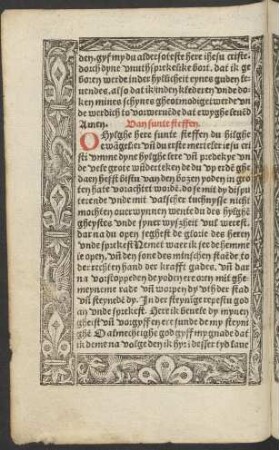 den. gyf my du aldersoteste here ihesu criste.
dorch dyne vnuthsprekelike bort. dat ik ge
boren werde in der hyllicheit eynes guden le
uendes. also dat ik in den klederen vnde do
ken mines schynes gheotmodiget werde vn̄
de werdich to vorweruēde dat ewyghe leuēd
Amen. Van sunte steffen.
O Hylghe here sunte steffen du hilghe
ewāgelier vn̄ du erste merteler iesu cri
sti vmme dyne hylghe lere vn̄ predekye vn̄
de vele grote wūderteken de du vp erde ghe
daen hefst bistu van den bosen yoden in gro
ten hate vorachtet wordē. do se mit dy dispu
terende vnde mit valscher tuchnysse nicht
mochten ouerwynnen wente du des hylghē
gheystes vnde syner wyszheit vul werest.
dar na du open seghest de glorie des heren
vnde sprekst Nemet waer ik see de hemme
le open. vn̄ den sone des minschen staēde to
der rechten hand der krafft gades. vn̄ dar
na vorstoppeden de yoden ere oren mit ghe
meyneme rade vn̄ worpen dy vth der stad
vn̄ steynedē dy. In der steynīge repestu god
an vnde sprekest. Here ik beuele dy mynen
gheist vn̄ vorgyff en ere sunde de my steynē
ghē. O almechtighe god gyff my gnade dat
ik deme na volge den ik hyr in desser tyd laue